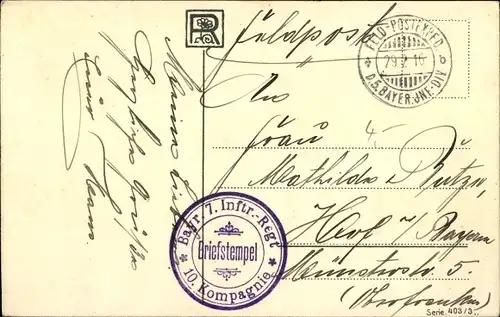 R
Feldpost
FELD-POSTEXPED.
* b
29 2 16
D.5.BAYER.INF.DIV
An
Frau
Mathilde
Hof i/ Bayern
Münsterstr. 5.
(Oberfranken)
Bayr. 7. Inftr.-Regt
Briefstempel
* 10. Kompagnie *
Meine
Herzliche Grüße
Hans
Serie. 403/3